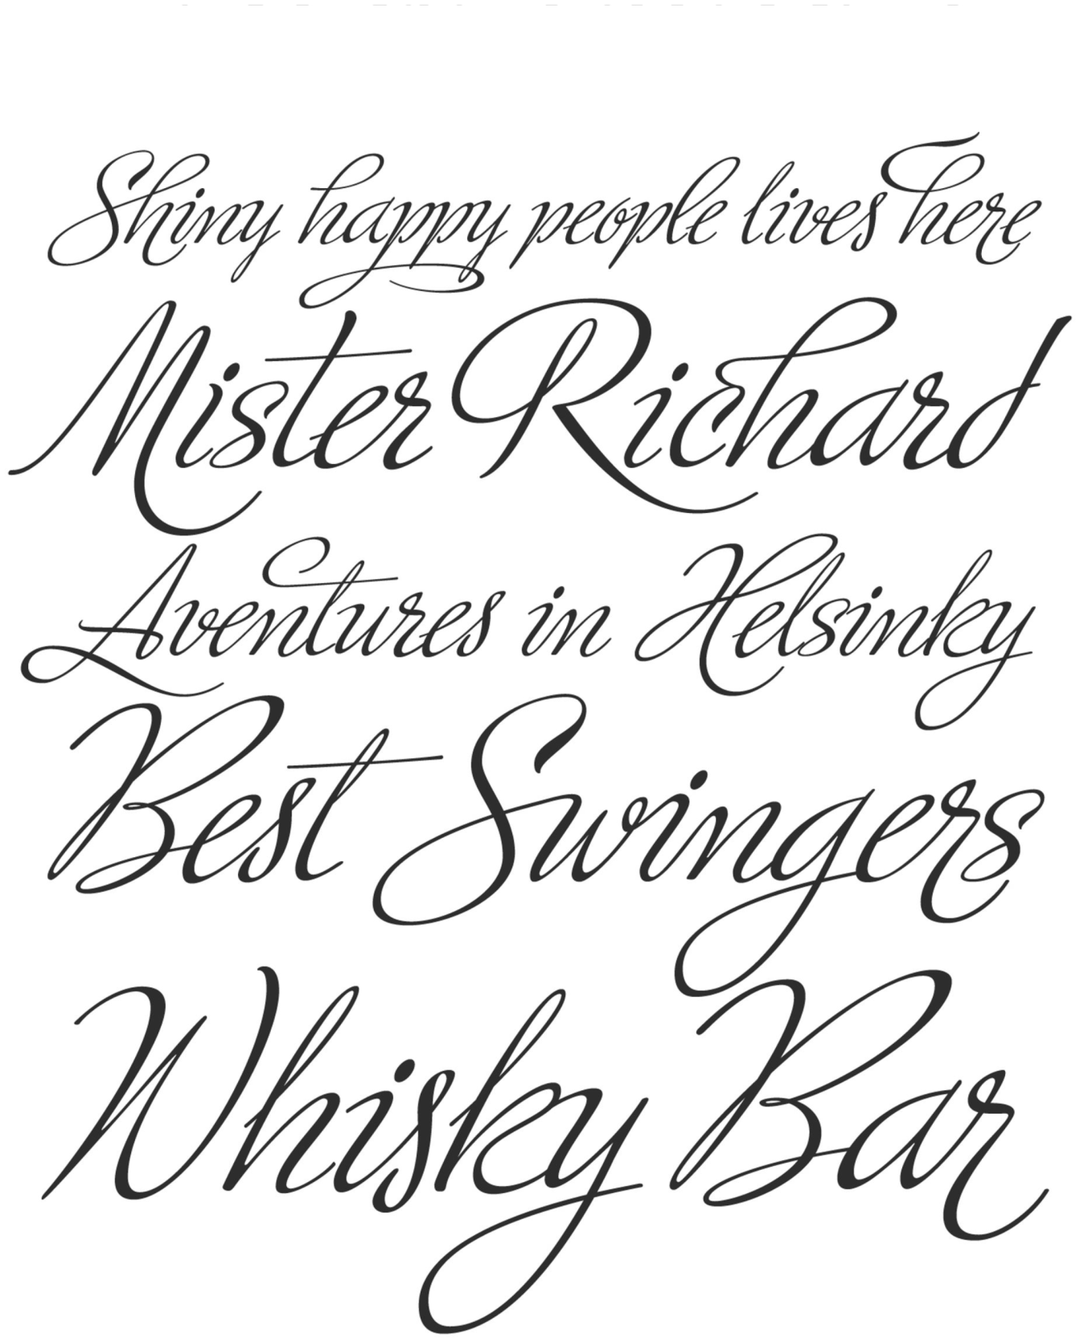 Shiny happy people lives here
Mister Richard
Aventures in Helsinky
Best Swingers
Whisky Bar